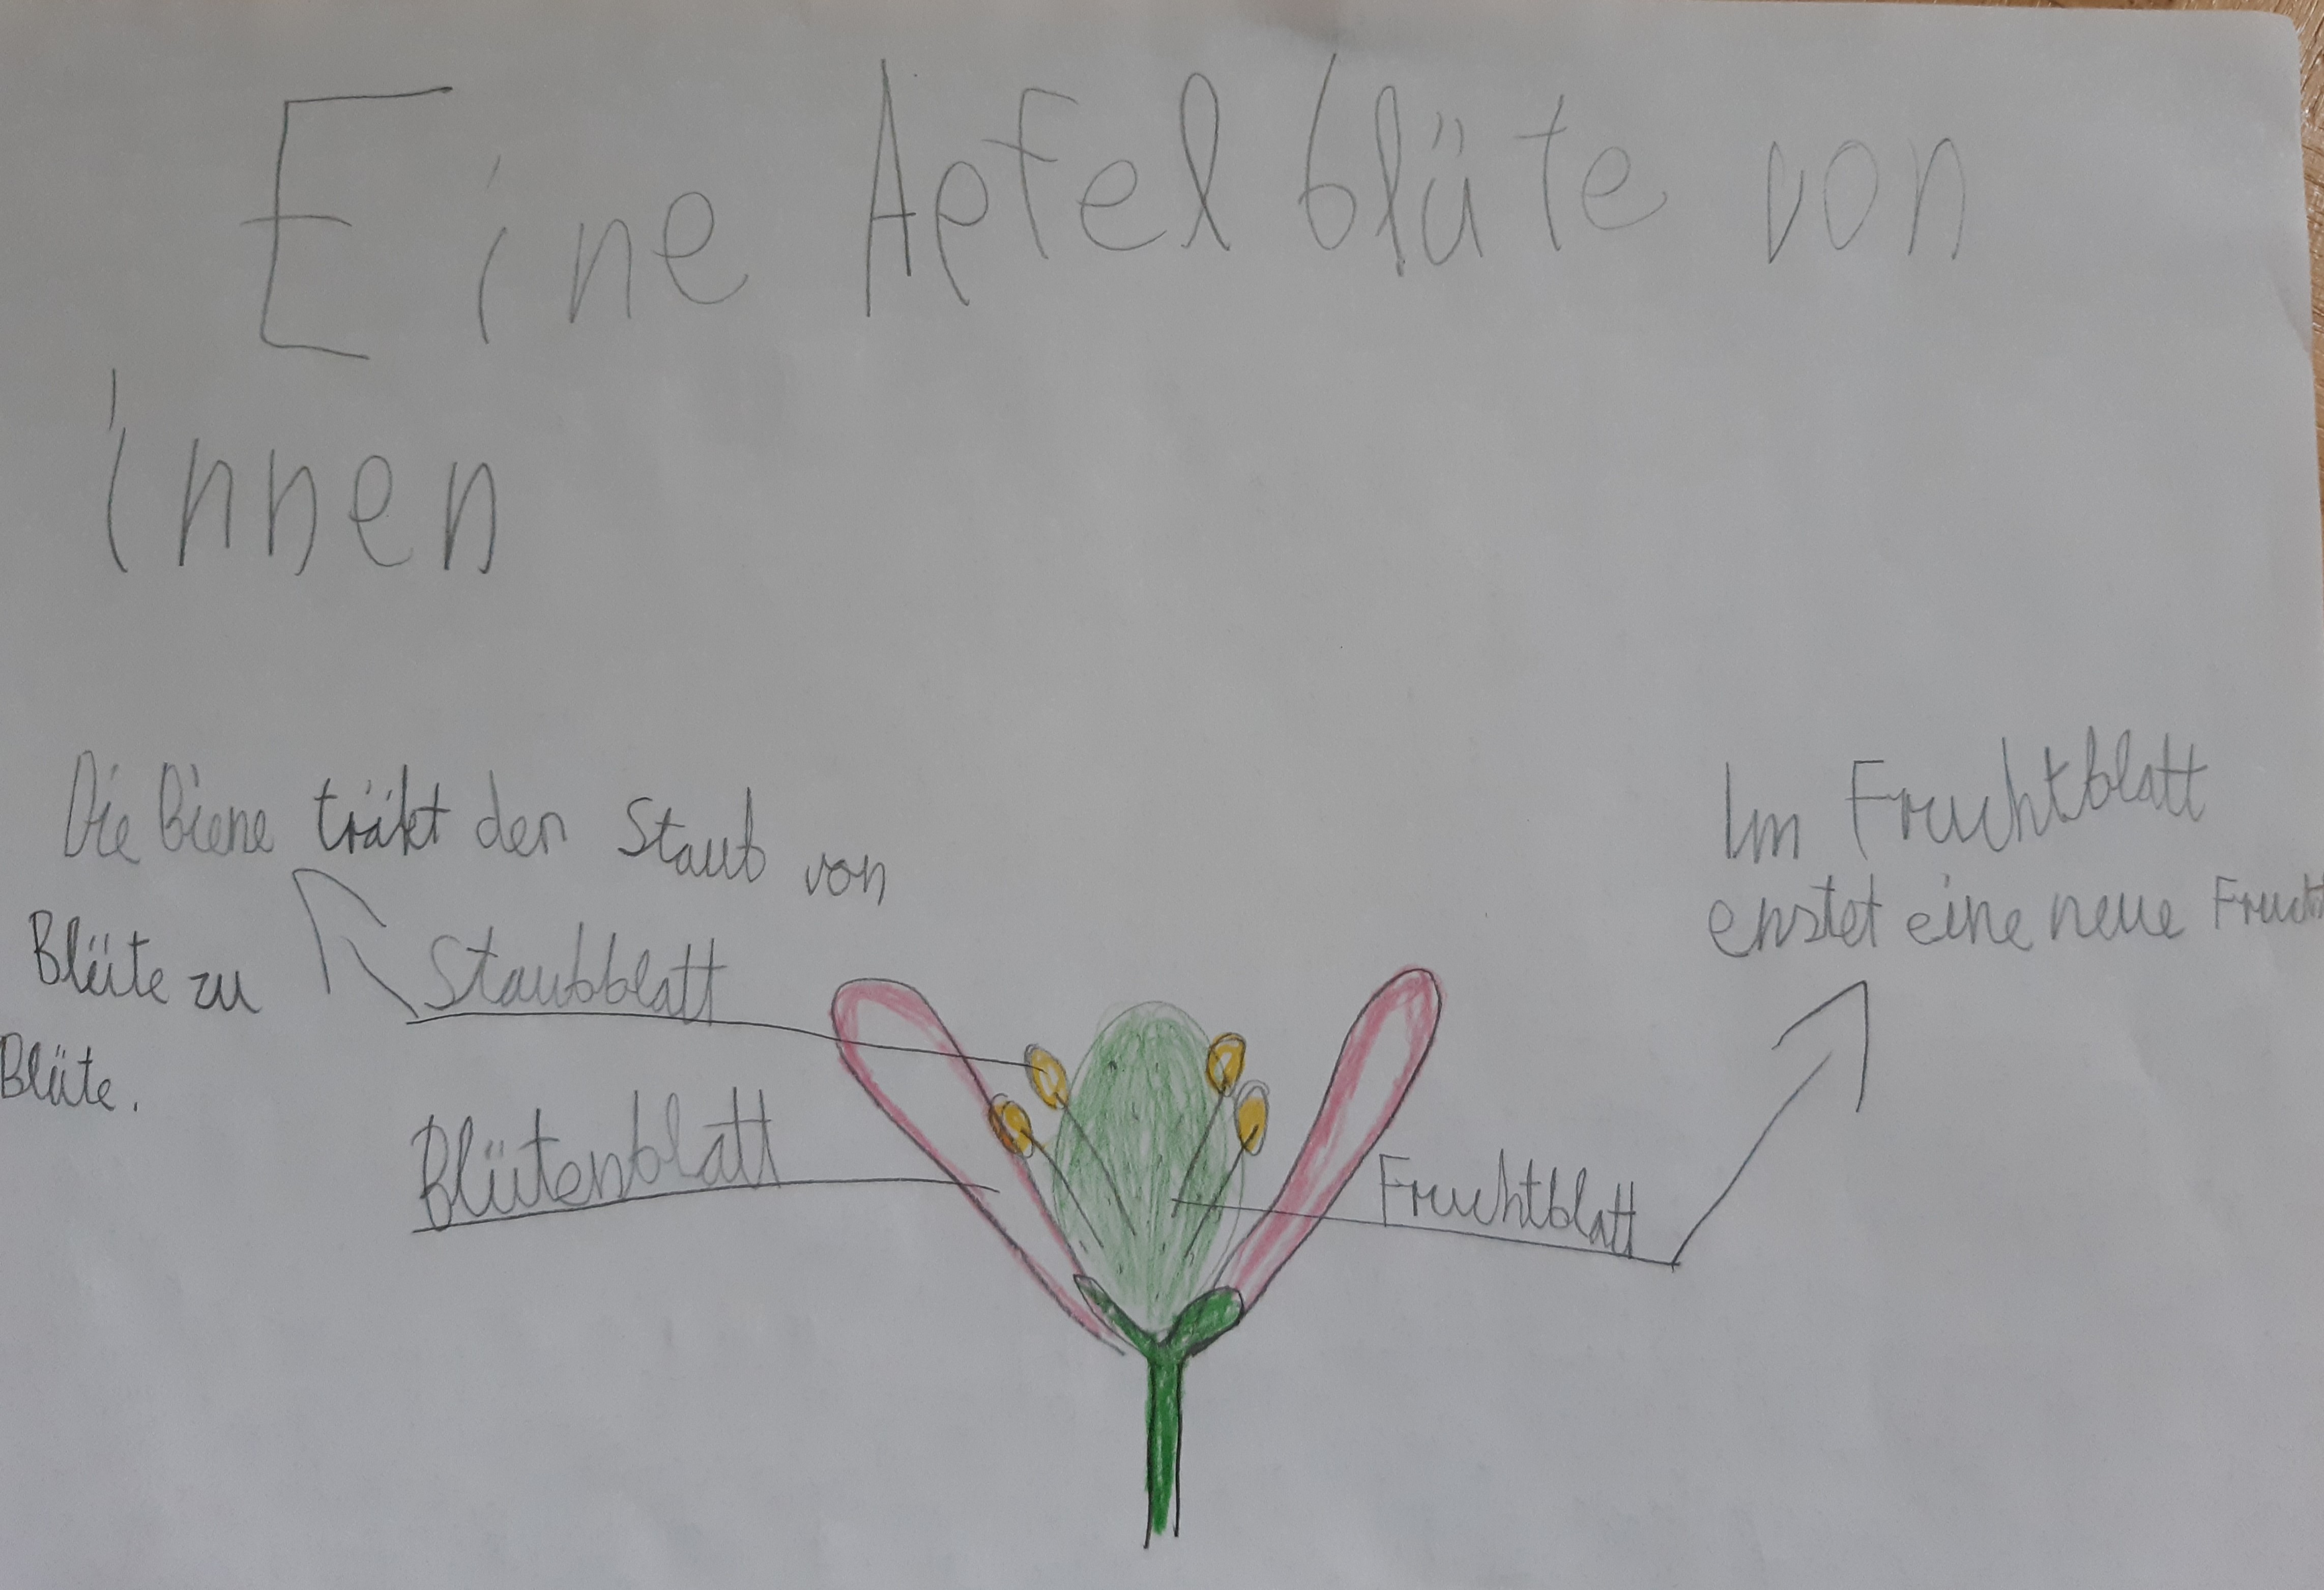 Eine Apfelblüte von
innen
Die Biene träkt den Staub von
Blüte zu
Blüte.
Staubblatt
Blütenblatt
Im Fruchtblatt
enstet eine neue Frucht
Fruchtblatt